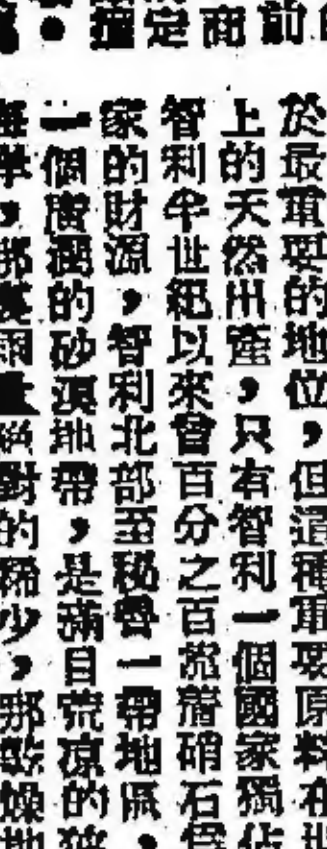 前
商
定
擅
於最重要的地位，但這種重要原料在世
上的天然出產，只有智利一個國家獨佔
智利半世紀以來曾百分之百靠着硝石
家的財源，智利北部至秘魯一帶地區，
一個廣濶的砂漠地帶，是滿目荒凉的
那裏雨量絕對的稀少，那
燥地